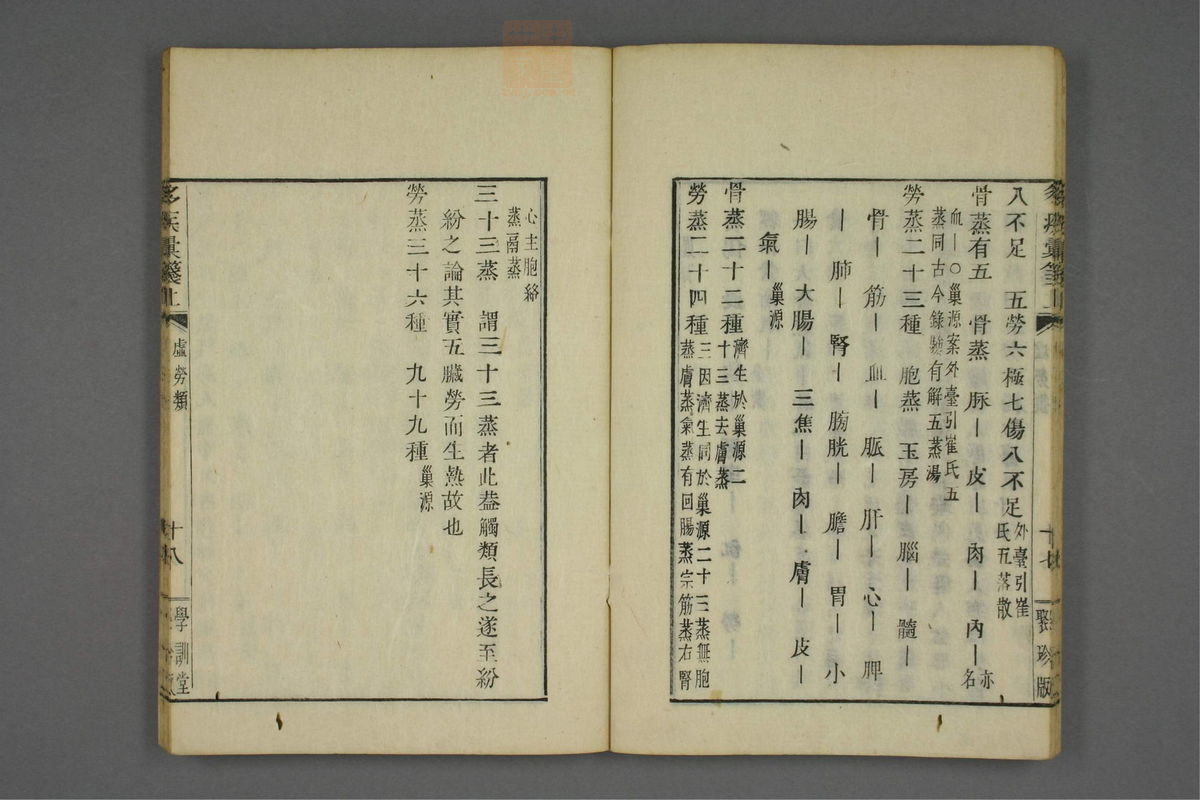 八不足　五勞六極七傷八不足外臺引崔
氏五落散
骨蒸有五　骨蒸　脉｜　皮｜　肉｜　內｜亦
名
血｜○巢源案外臺引崔氏五
蒸同古今錄驗有解五蒸湯
勞蒸二十三種　胞蒸　玉房｜　腦｜　髓｜
骨｜　筋｜　血｜　脈｜　肝｜　心｜　脾
｜　肺｜　腎｜　膀胱｜　膽｜　胃｜　小
腸｜　大腸｜　三焦｜　肉｜　膚｜　皮｜
氣｜巢源
骨蒸二十二種濟生於巢源二
十三蒸去膚蒸
勞蒸二十四種三因濟生同於巢源二十三蒸無胞
蒸膚蒸氣蒸有回腸蒸宗筋蒸右腎
十七
聚珍版
心主胞絡
蒸鬲蒸
三十三蒸　謂三十三蒸者此葢觸類長之遂至紛
紛之論其實五臟勞而生熱故也
勞蒸三十六種　九十九種巢源
虛勞類
十八
學訓堂